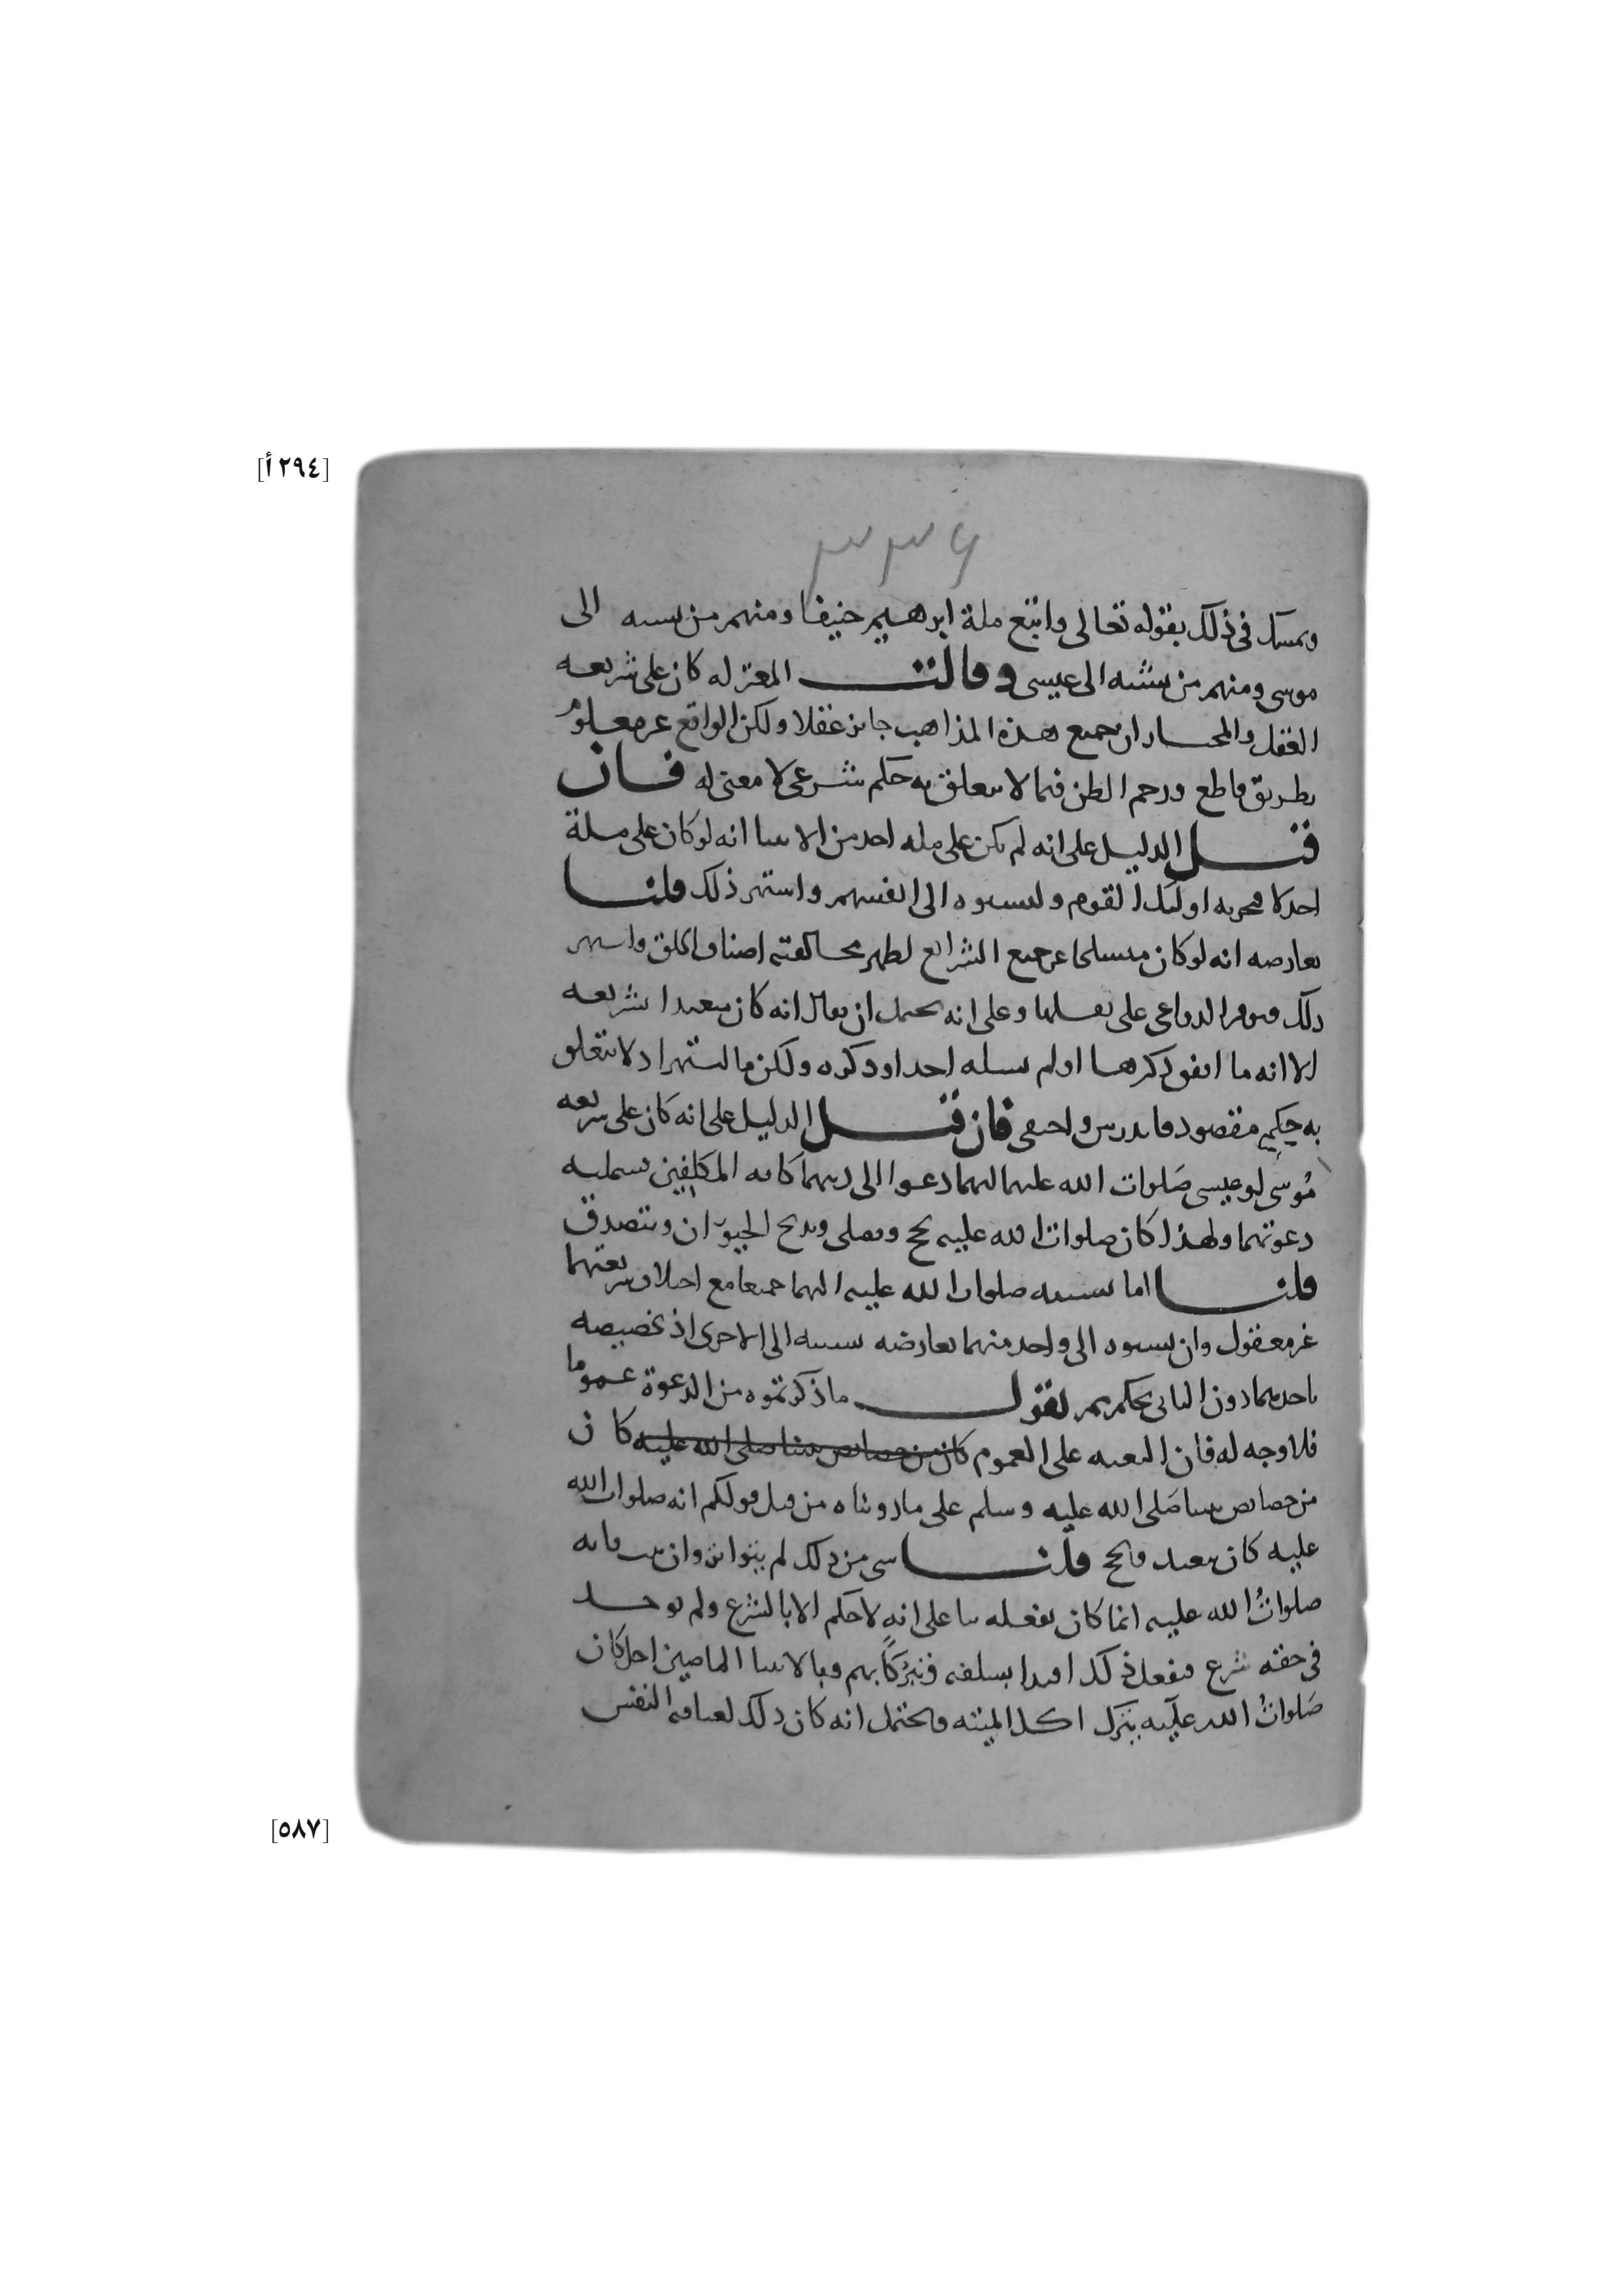 [٢٩٤أ]
٣٣٦
وتمسك في ذلك بقوله تعالى واتبع ملة ابرهيم حنيفا ومنهم من نسبه الى
موسى ومنهم من ينسبه الى عيسى وقالت المعتزله كان على شريعه
العقل والمختار ان جميع هذه المذاهب جائز عقلا ولكن الواقع غير معلوم
بطريق قاطع ورجم الظن فيما لا يتعلق به حكم شرعي لا معنى له فان
قيل الدليل على انه لم يكن على مله احد من الانبيا انه لو كان على ملة
احد لافتخر به اولئك القوم ولنسبوه الى انفسهم واشتهر ذلك قلنا
يعارضه انه لو كان منسلخا عن جميع الشرائع لظهر مخالفته اصناف الخلق واشتهر
ذلك وتوفر الدواعي على نقلها وعلى انه يحتمل ان يقال انه كان متعبدا بشريعه
الا انه ما اتفق ذكرها او لم يسله احد او ذكره ولكن ما اشتهر اذ لا يتعلق
به حكم مقصود فاندرس واختفى فان قيل الدليل على انه كان على شريعه
موسى او عيسى صلوات الله عليهما انهما دعوا الى دينهما كافه المكلفين شمليه
دعوتهما ولهذا كان صلوات الله عليه يحج ويصلي ويذبح الحيوان ويتصدق
قلنا اما نسبته صلوات الله عليه اليهما جميعا مع اختلاف شريعتهما
غير معقول وان نسبوه الى واحد منهما يعارضه نسبته الى الاخرى اذ تخصيصه
باحديهما دون الثاني تحكم ثم نقول ما ذكرتموه من الدعوة عموما
فلا وجه له فان البعثه على العموم كان من خصائص نبينا صلى الله عليه كان
من خصائص نبينا صلى الله عليه وسلم على ما رويناه من قبل قولكم انه صلوات الله
عليه كان يتعبد ويحج قلنا شي من ذلك لم يتواتر وان ثبت فانه
صلوات الله عليه انما كان يفعله بنا على انه لا حكم الا بالشرع ولم يوجد
في حقه شرع ففعل ذلك اقتدا بسلفه وتبركا بهم وبالانبيا الماضين اجل كان
صلوات الله عليه يترك اكل الميته ويحتمل انه كان ذلك لعيافة النفس
[٥٨٧]